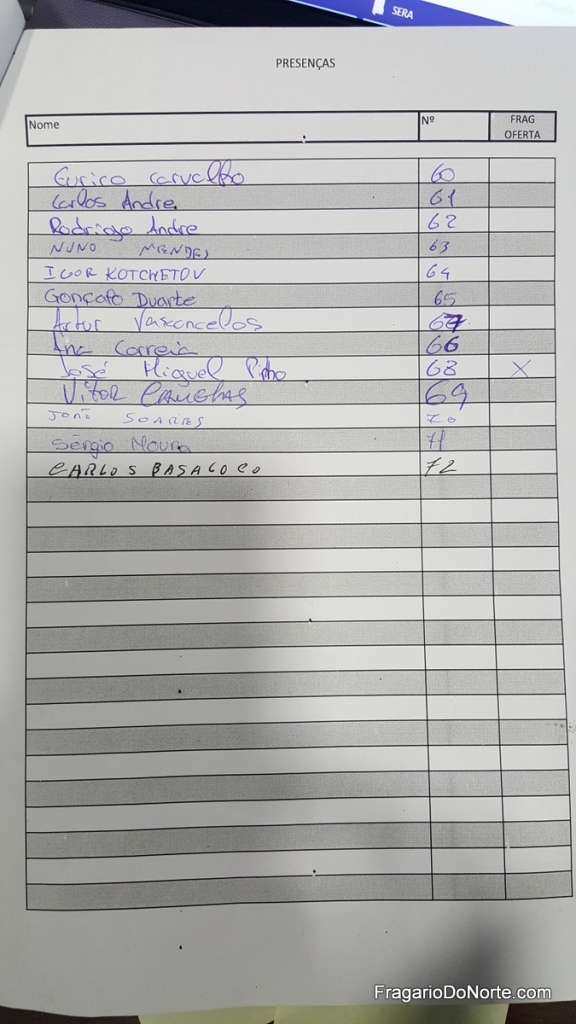 SERA
PRESENÇAS
Nome Nº FRAG OFERTA
Eurico Carvalho 60
Carlos Andre 61
Rodrigo Andre 62
NUNO MENDES 63
IGOR KOTCHETOV 64
Gonçalo Duarte 65
Artur Vasconcelos 67
Ana Correia 66
José Miguel Pinho 68 X
VITOR 69
SOARES 70
Sérgio Moura 71
CARLOS BASALOCO 72
FragarioDoNorte.com